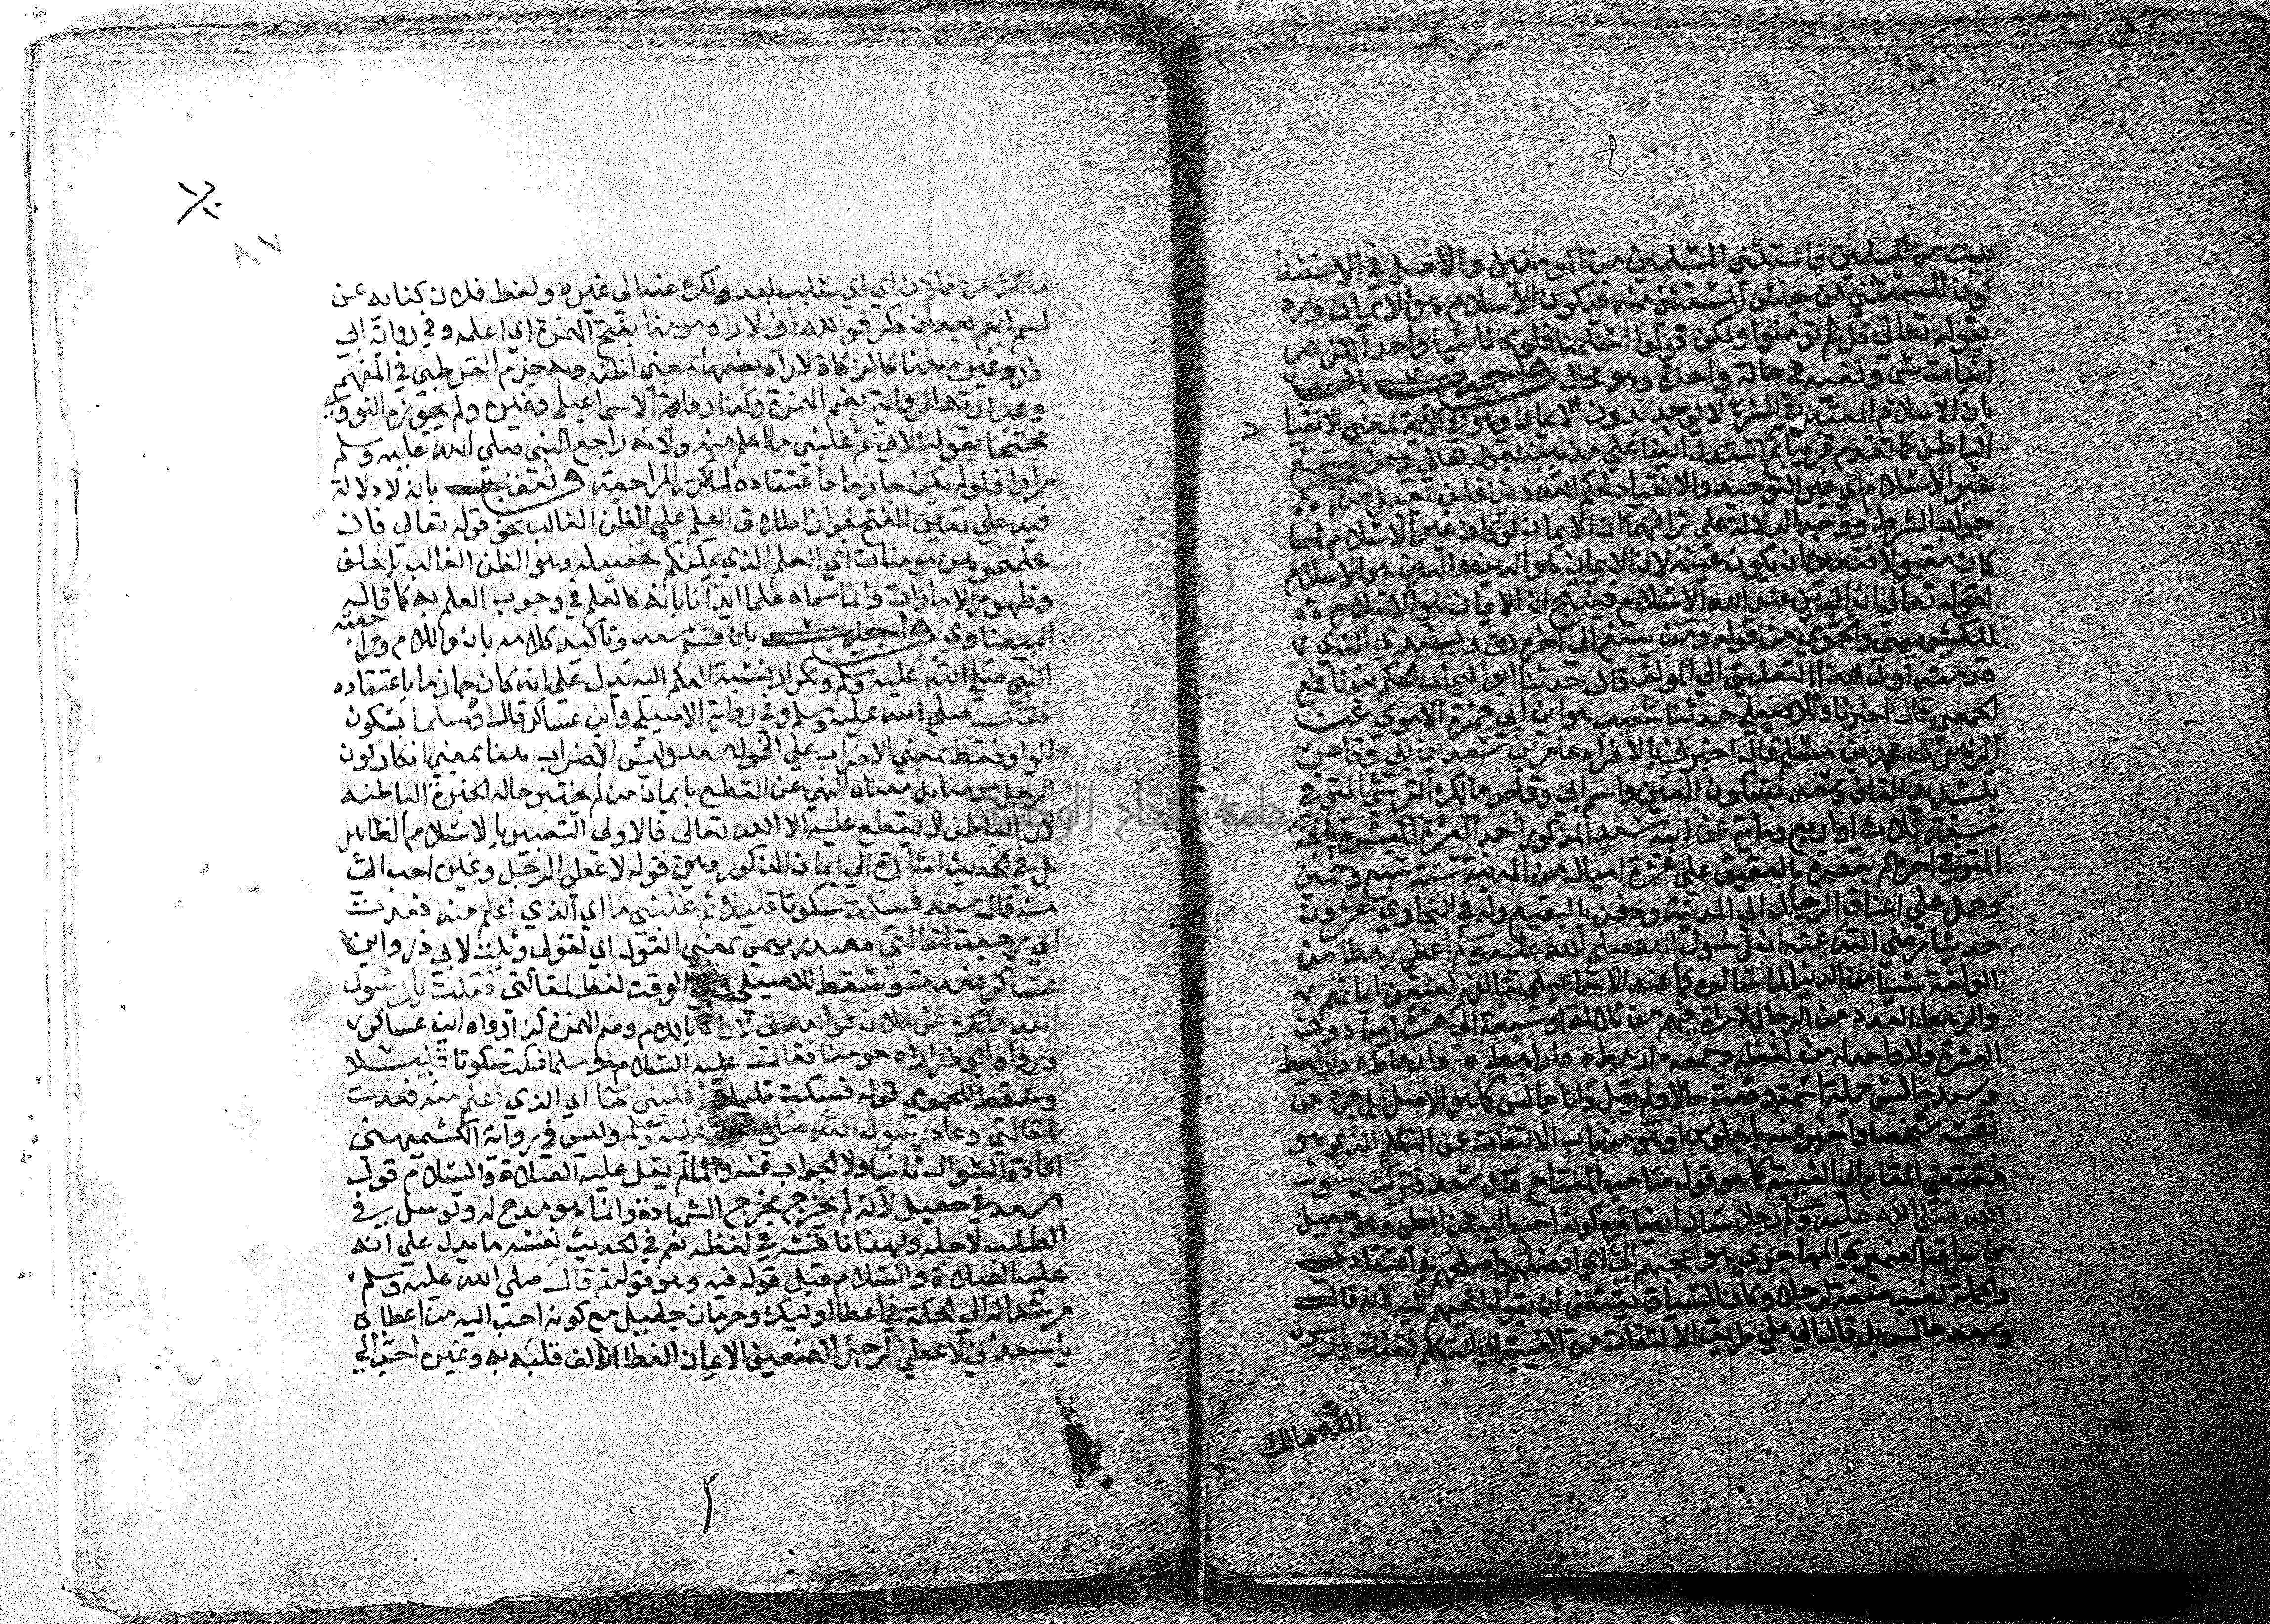 بيت من المسلمين فاستثنى المسلمين من المومنين والاصل في الاستثنا
كون المستثني من جنس المستثنى منه فيكون الاسلام هو الايمان ورد
بقوله تعالى قل لم تومنوا ولكن قولوا اسلمنا فلو كانا شيا واحدا لزم
اثبات شي ونفيه في حالة واحدة وهو محال واجيب
بان الاسلام المعتبر في الشرع لا يوجد بدون الايمان وهو في الآية بمعنى الانقيا
الباطن كما تقدم قريبا ثم استدل ايضا على مذهبه بقوله تعالى ومن يبتغ
غير الاسلام اي غير التوحيد والانقياد لحكم الله دينا فلن يقبل منه
جواب الشرط ووجه الدلالة على ترادفهما ان الايمان لو كان غير الاسلام لما
كان مقبولا فتعين ان يكون عينه لان الايمان هو الدين والدين هو الاسلام
لقوله تعالى ان الدين عند الله الاسلام فينتج ان الايمان هو الاسلام
للكشميهني والحموي من قوله ومن يبتغ الى اخره وبسندي الذي
قدمته اول هذا التعليق الى المولف قال حدثنا ابو اليمان الحكم بن نافع
الحمصي قال اخبرنا وللاصيلي حدثنا شعيب هو ابن ابي حمزة الاموي عن
الزهري محمد بن مسلم قال اخبرني بالافراد عامر بن سعد بن ابي وقاص
بتشديد القاف وسعد بسكون العين واسم ابي وقاص مالك القرشي المتوفي
سنة ثلاث او اربع وماية عن ابيه سعد المذكور احد العشرة المبشرة بالجنة
المتوفي اخرهم بقصره بالعقيق على عشرة اميال من المدينة سنة سبع وخمسين
وحمل على اعناق الرجال الى المدينة ودفن بالبقيع وله في البخاري عشرون
حديثا رضي الله عنه ان رسول الله صلى الله عليه وسلم اعطى رهطا من
المولفة شيا من الدنيا لما سالوه كما عند الاسماعيلي ليتالفهم لضعف ايمانهم
والرهط العدد من الرجال لا امراة فيهم من ثلاثة او سبعة الى عشرة او ما دون
العشرة ولا واحد له من لفظه وجمعه ارهط واراهط وارهاط واراهيط
وسعد جالس جملة اسمية وقعت حالا ولم يقل وانا جالس كما هو الاصل بل جرد من
نفسه شخصا واخبر عنه بالجلوس او هو من باب الالتفات عن التكلم الذي هو
مقتضى المقام الى الغيبة كما هو قول صاحب المفتاح قال سعد فترك رسول
الله صلى الله عليه وسلم رجلا سال ايضا مع كونه احب اليه ممن اعطى وهو جعيل
بن سراقة الضمري المهاجري هو اعجبهم الي اي افضلهم واصلحهم في اعتقادي
والجملة نصب صفة لرجلا وكان السياق يقتضي ان يقول اعجبهم اليه لانه قال
وسعد جالس بل قال الي على طريق الالتفات من الغيبة الى التكلم فقلت يا رسول
الله مالك
مالك عن فلان اي اي سبب لعدولك عنه الى غيره ولفظ فلان كناية عن
اسم ابهم بعد ان ذكر فوالله اني لاراه مومنا بفتح الهمزة اي اعلمه وفي رواية ابي
ذر وغيره هنا كالزكاة لاراه بضمها بمعنى اظنه وبه جزم القرطبي في المفهم
وعبارته الرواية بضم الهمزة وكذا رواه الاسماعيلي وغيره ولم يجوزه النووي
محتجا بقوله الاتي ثم غلبني ما اعلم منه ولانه راجع النبي صلى الله عليه وسلم
مرارا فلو لم يكن جازما باعتقاده لما كرر المراجعة وتعقب بانه لا دلالة
فيه على تعين الفتح لجواز اطلاق العلم على الظن الغالب نحو قوله تعالى فان
علمتموهن مومنات اي العلم الذي يمكنكم تحصيله وهو الظن الغالب بالحلف
وظهور الامارات وانما سماه علما ايذانا بانه كالعلم في وجوب العمل به كما قاله
البيضاوي واجيب بان قسم سعد وتاكيد كلامه بان واللام ومراجعته
النبي صلى الله عليه وسلم وتكرار نسبة العلم اليه يدل على انه كان جازما باعتقاده
فقال صلى الله عليه وسلم وفي رواية الاصيلي وابن عساكر قال او مسلما بسكون
الواو فقط بمعنى الاضراب على قول سعد وليس الاضراب هنا بمعنى انكار كون
الرجل مومنا بل معناه النهي عن القطع بايمان من لم يختبر حاله الخبرة الباطنة
لان الباطن لا يطلع عليه الا الله تعالى فالاولى التعبير بالاسلام الظاهر
بل في الحديث اشارة الى ايمان المذكور وهي قوله لاعطي الرجل وغيره احب الي
منه قال سعد فسكت سكوتا قليلا ثم غلبني ما اي الذي اعلم منه فعدت
اي رجعت لمقالتي مصدر ميمي بمعنى القول اي لقولي وثبت لابي ذر وابن
عساكر فعدت وسقط للاصيلي وابي الوقت لفظ لمقالتي فقلت يا رسول
الله مالك عن فلان فوالله اني لاراه باللام وضم الهمزة كذا رواه ابن عساكر
ورواه ابو ذر اراه مومنا فقال عليه السلام او مسلما فسكت سكوتا قليلا
وسقط للحموي قوله فسكت قليلا ثم غلبني ما اي الذي اعلم منه فعدت
لمقالتي وعاد رسول الله صلى الله عليه وسلم وليس في رواية الكشميهني
اعادة السوال ثانيا ولا الجواب عنه وانما لم يقبل عليه الصلاة والسلام قول
سعد في جعيل لانه لم يخرج مخرج الشهادة وانما هو مدح له وتوسل في
الطلب لاجله ولهذا ناقشه في لفظه نعم في الحديث نفسه ما يدل على انه
عليه الصلاة والسلام قبل قوله فيه وهو قوله ثم قال صلى الله عليه وسلم
مرشدا له الى الحكمة في اعطا اوليك وحرمان جعيل مع كونه احب اليه ممن اعطاه
يا سعد اني لاعطي الرجل الضعيف الايمان العطا اتالف قلبه به وغيره احب الي